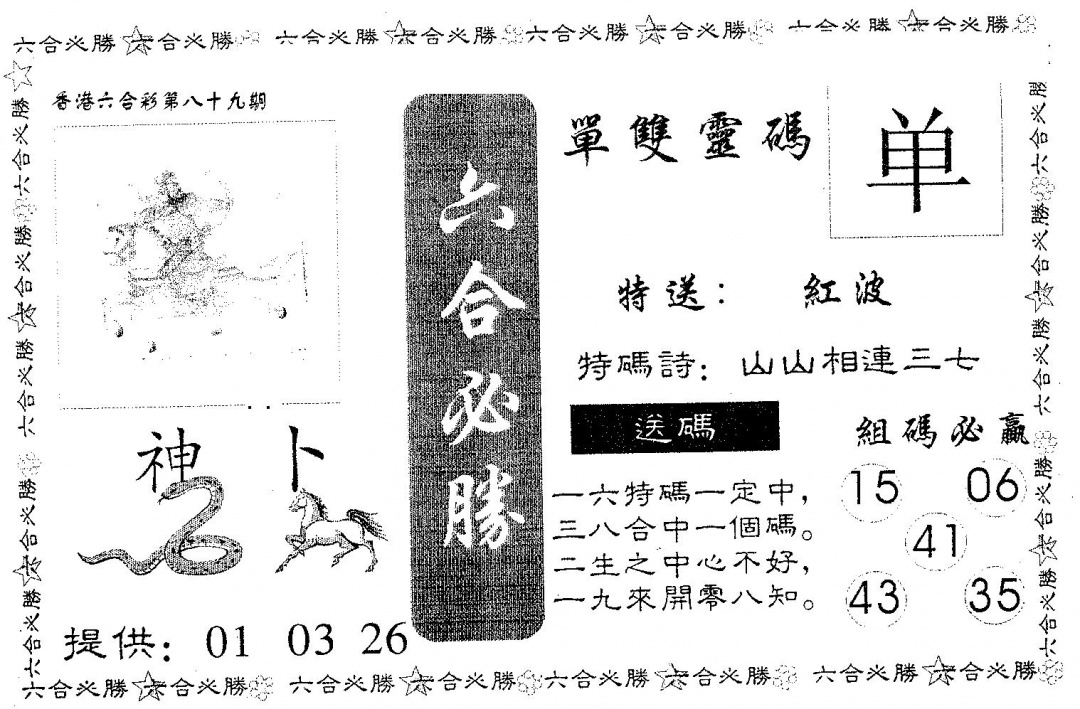 六合必勝 六合必勝 六合必勝 六合必勝 六合必勝 六合必勝 六合必勝 六合必勝
香港六合彩第八十九期
神卜
提供：01 03 26
六合必勝
單雙靈碼
单
特送：紅波
特碼詩：山山相連三七
送碼
一六特碼一定中，
三八合中一個碼。
二生之中心不好，
一九來開零八知。
組碼必贏
15 06
41
43 35
六合必勝 六合必勝 六合必勝 六合必勝 六合必勝 六合必勝 六合必勝 六合必勝
六合必勝 六合必勝 六合必勝 六合必勝 六合必勝
六合必勝 六合必勝 六合必勝 六合必勝 六合必勝